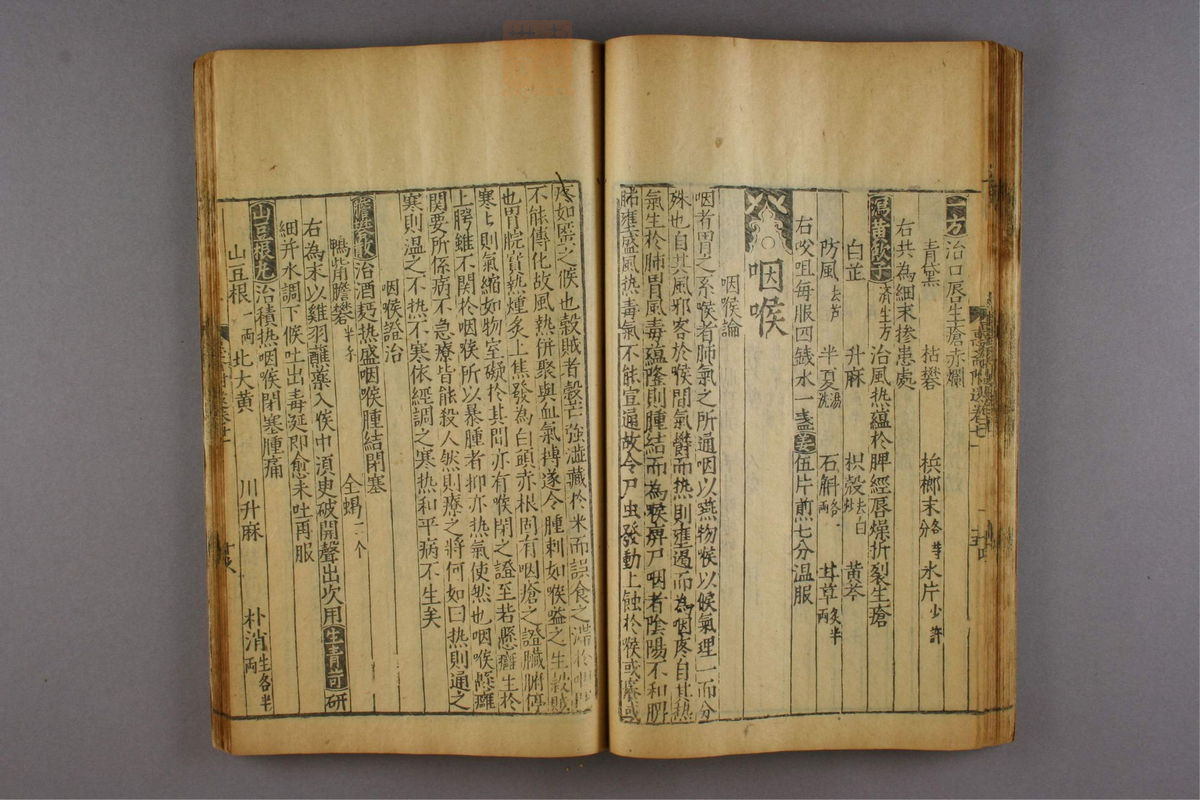 一方治口唇生瘡赤爛
青黛 枯礬 檳榔末各等分 氷片少許
右共為細末摻患處
瀉黄飲子済生方治風热蕴於脾經唇燥折裂生瘡
白芷 升麻 枳殻去白炒 黄芩
防風去芦 半夏湯洗 石斛各一両 甘草炙半両
右㕮咀每服四錢水一盞姜伍片煎七分温服
咽喉
咽喉論
咽者胃之系喉者肺氣之所通咽以嚥物喉以候氣理一而分
殊也自其風邪客於喉間氣欝而热則壅遏而為咽疼自其热
氣生於肺胃風毒蕴隆則腫結而為喉痹尸咽者陰陽不和脾
肺壅盛風热毒氣不能宣通故令尸虫發動上蝕於喉或痒或
疼如䘌之候也糓賊者糓芒強澁藏於米而誤食之滞於咽中
不能傳化故風热併聚與血氣搏遂令腫刺如喉嗌之生糓賊
也胃脘實热煙炙上焦發為白頭赤根固有咽瘡之證臓腑停
寒寒則氣縮如物窒礙於其間亦有喉閉之證至若懸癰生於
上腭雖不関於咽喉所以暴腫者抑亦热氣使然也咽喉懸癰
関要所係病不急療皆能殺人然則療之將何如曰热則通之
寒則温之不热不寒依經調之寒热和平病不生矣
咽喉證治
膽礬散治酒麪热盛咽喉腫結閉塞
鴨觜膽礬半 全蝎二个
右為末以雞羽蘸藥入喉中湏㬰破開聲出次用生青 研
細井水調下候吐出毒涎即愈未吐再服
山豆根丸治積热咽喉閉塞腫痛
山豆根一両 北大黄 川升麻 朴消生各半両